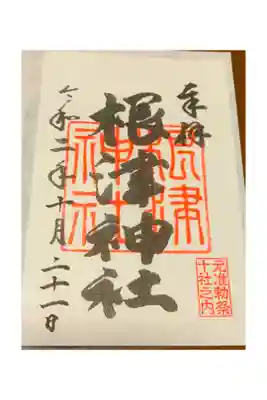 奉拝
根津神社
令和二年十月二十一日
根津神社
元准勅祭
十社之内